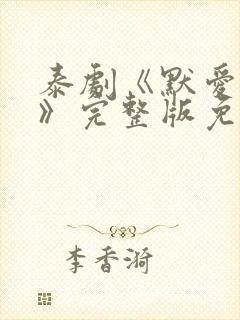 泰劇《默愛
》完整版免
李香漪